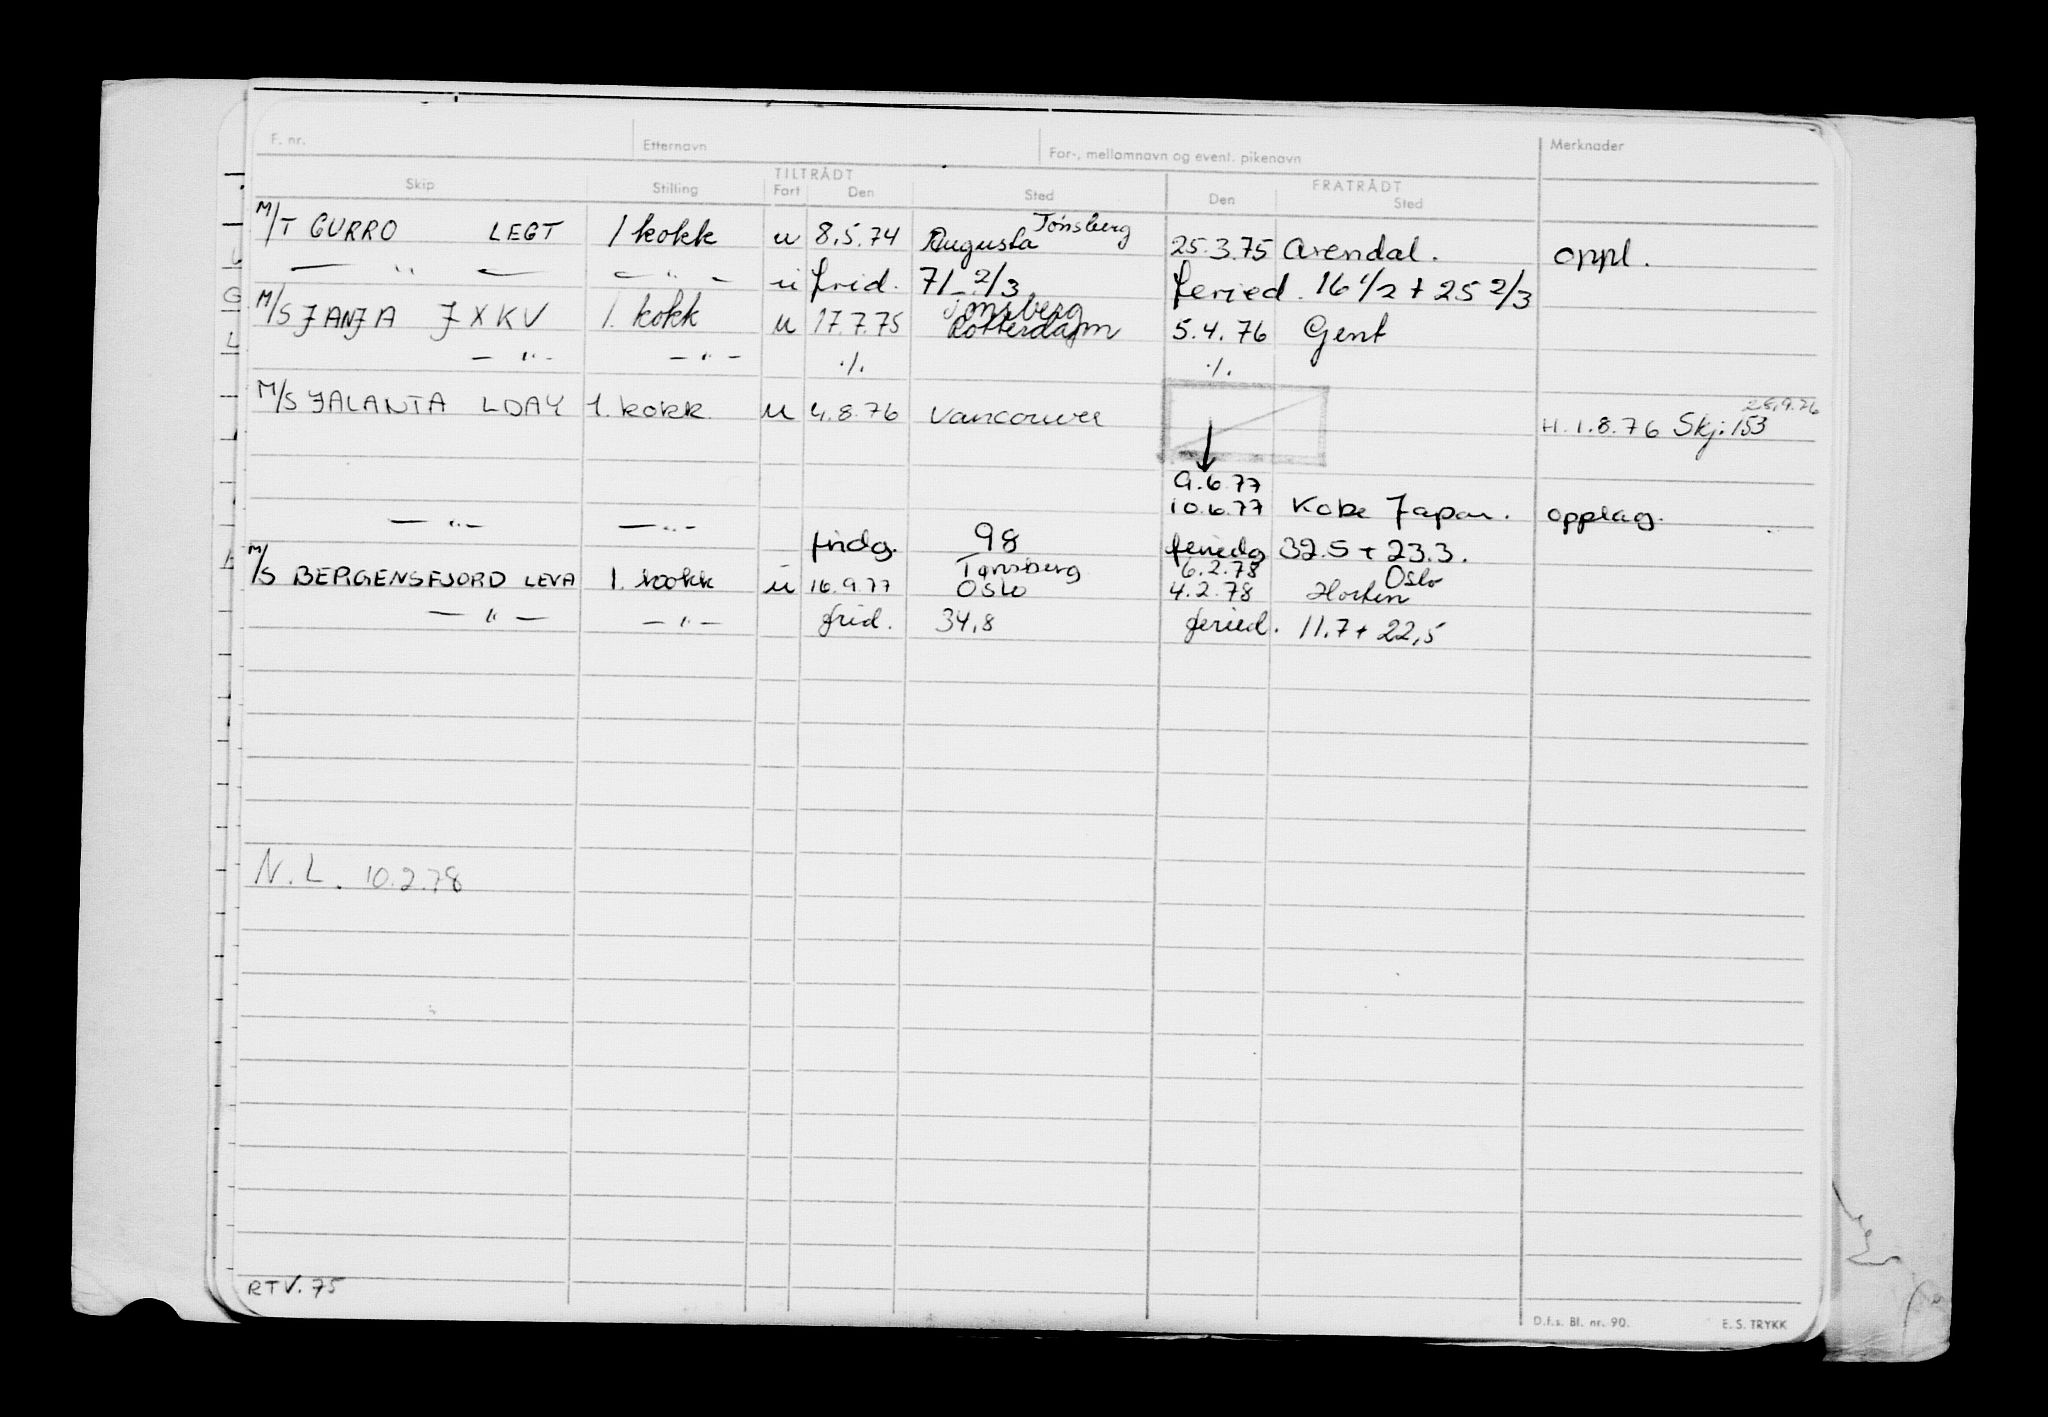 F. nr. Etternavn For-, mellomnavn og event. pikenavn Merknader
TILTRÅDT FRATRÅDT
Skip Stilling Fart Den Sted Den Sted
M/T GURRO LEGT 1 kokk u 8.5.74 Augusta Tønsberg 25.3.75 Arendal. oppl.
— " — — " — u frid. 71 - 2/3 feried. 16 1/2 + 25 2/3
M/S JANJA JXKV 1. kokk u 17.7.75 Rotterdam 5.4.76 Gent
— " — — " — ./. ./.
M/S JALANTA LDAY 1. kokk u 4.8.76 Vancouver H. 1.8.76 Skj: 153 28.9.76
9.6.77
10.6.77 Kobe Japan. opplag.
— " — — " — fridg. 98 feriedg 32.5 + 23.3.
M/S BERGENSFJORD LEVA 1. kokk u 16.9.77 Tønsberg Oslo 6.2.78 4.2.78 Horten Oslo
— " — — " — frid. 34,8 feried. 11.7 + 22,5
N.L. 10.2.78
RTV. 75
D.f.s. Bl. nr. 90. E. S. TRYKK